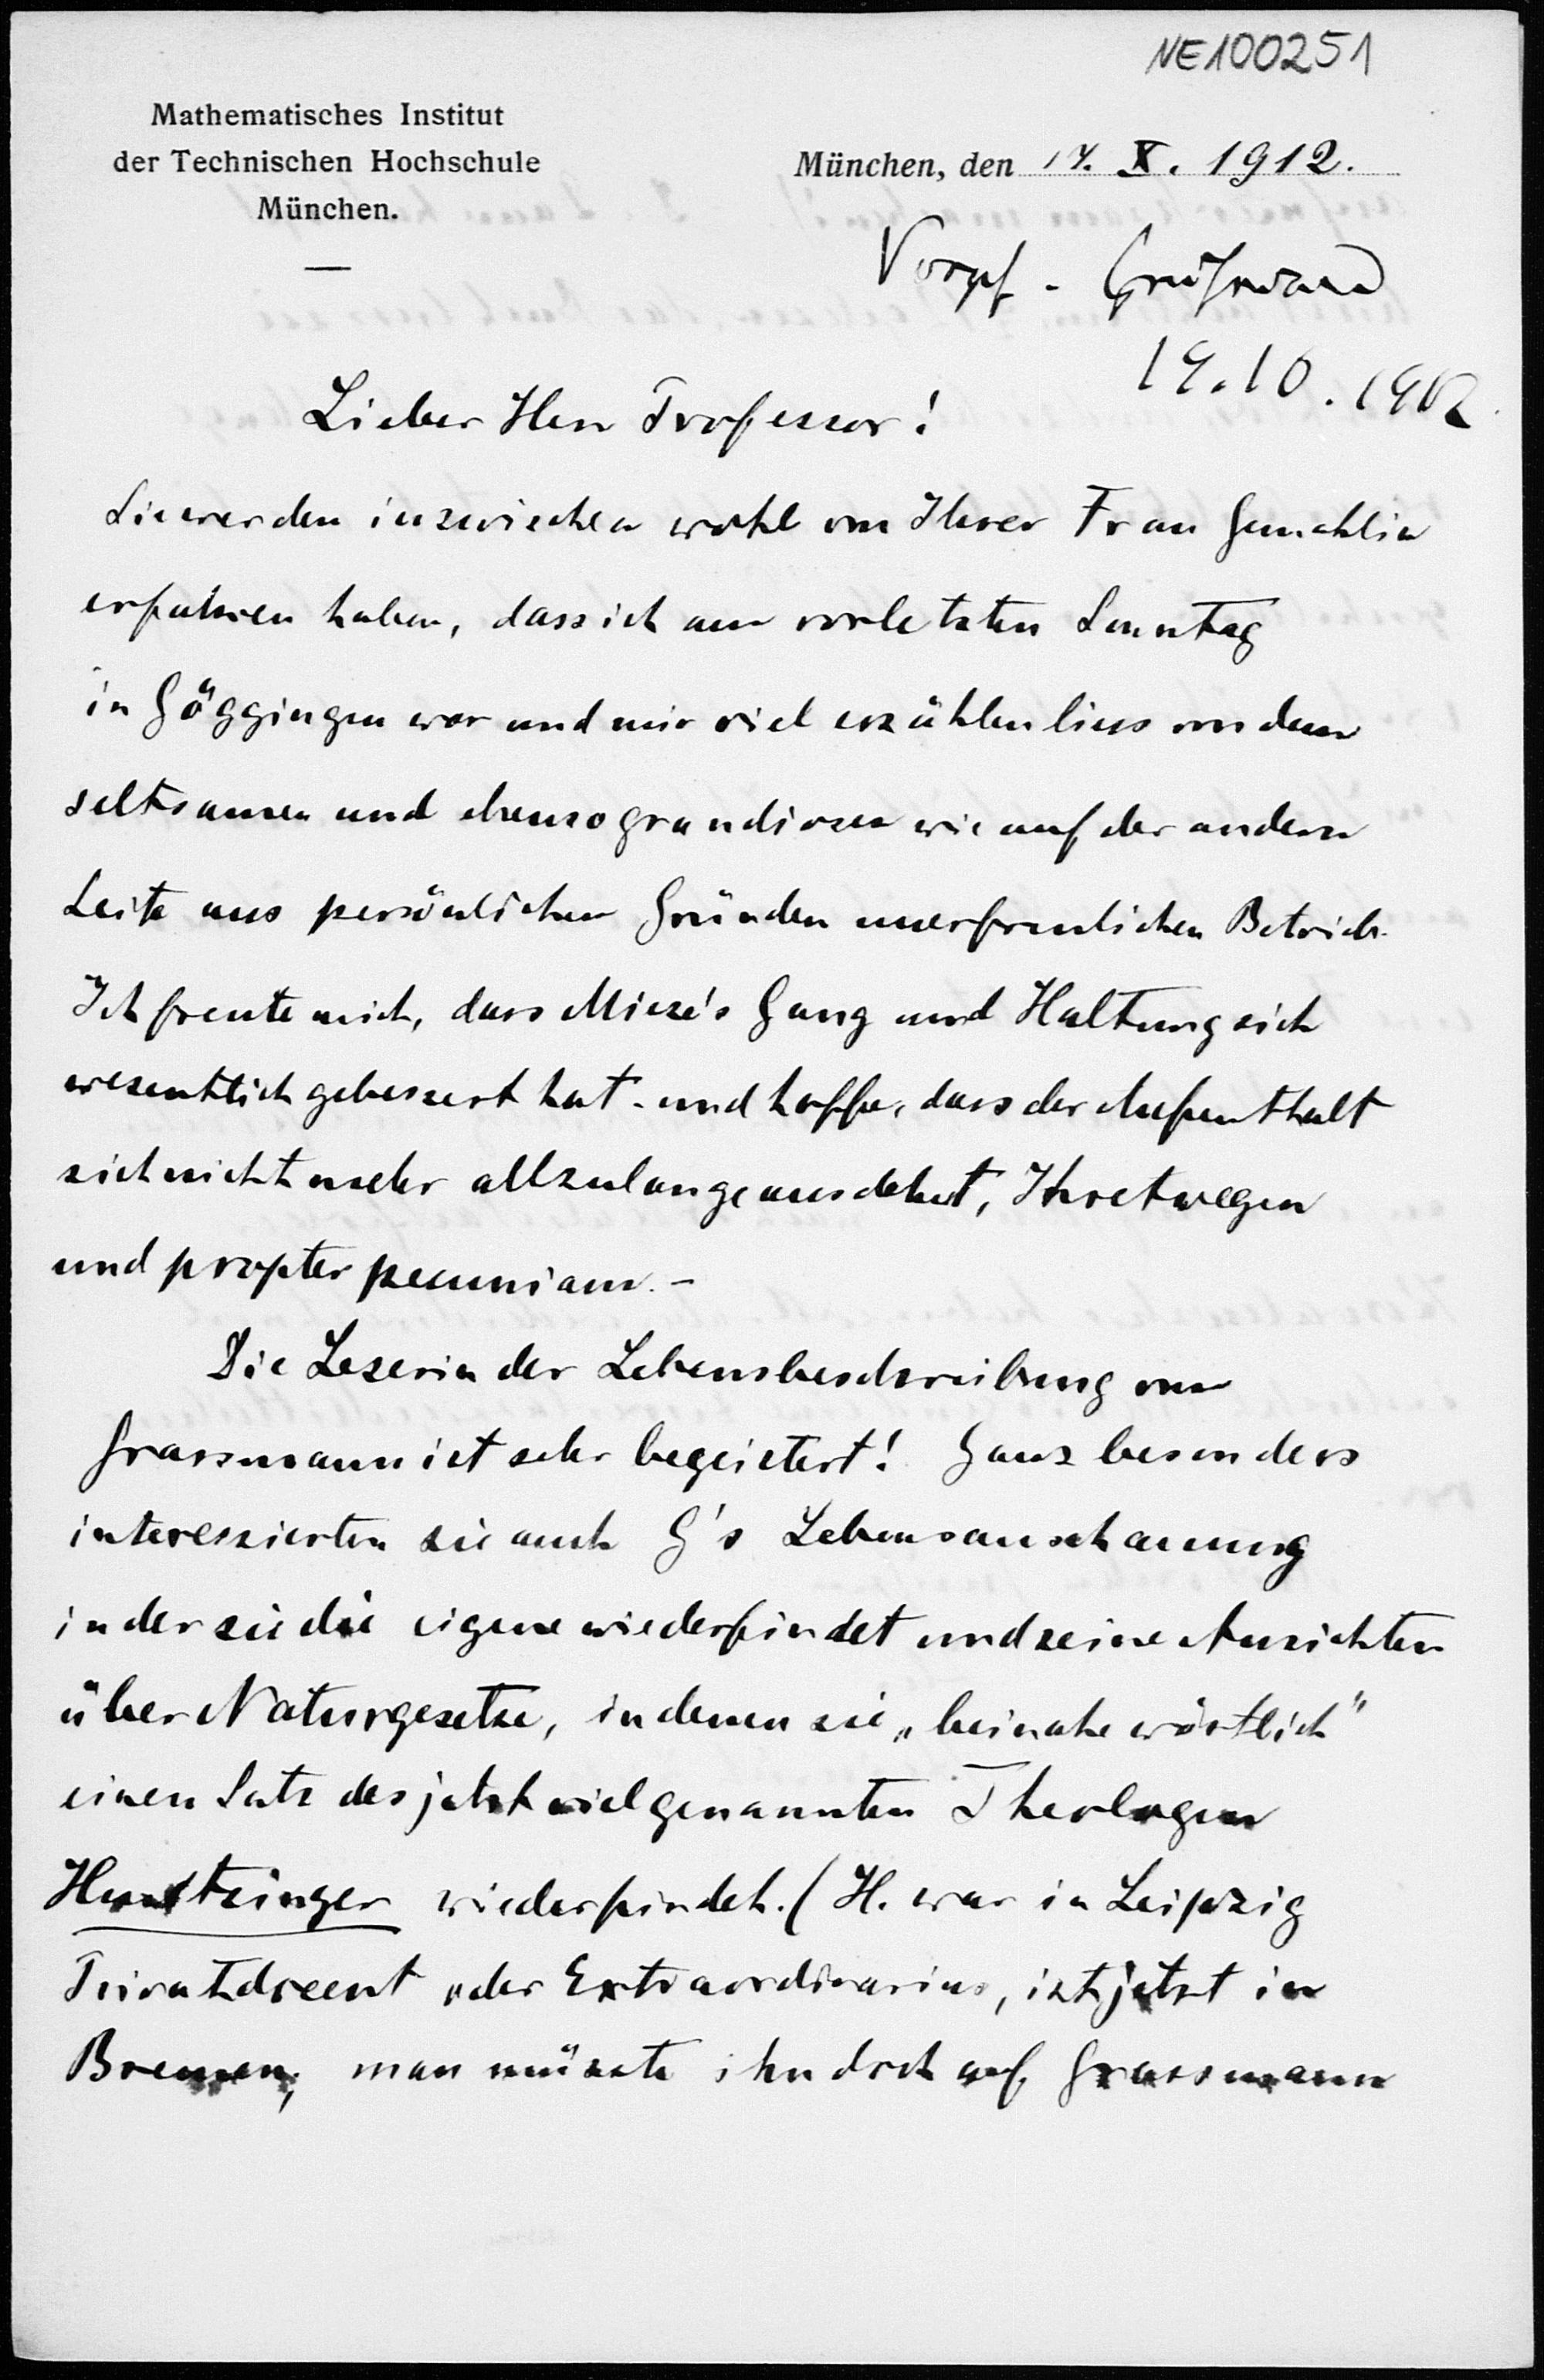 NE100251
Mathematisches Institut
der Technischen Hochschule
München.
München, den 17. X. 1912.
19.10.1912
Lieber Herr Professor!
Sie werden inzwischen wohl von Ihrer Frau Gemahlin
erfahren haben, dass ich am vorletzten Sonntag
in Göggingen war und mir viel erzählen liess von dem
seltsamen und ebenso grandiosen wie auf der andern
Seite aus persönlichen Gründen unerfreulichen Betrieb.
Ich freute mich, dass Mieze's Gang und Haltung sich
wesentlich gebessert hat - und hoffe, dass der Aufenthalt
sich nicht mehr allzulange ausdehnt, Ihretwegen
und propter pecuniam. -
Die Leserin der Lebensbeschreibung von
Grassmann ist sehr begeistert! Ganz besonders
interessierten sie auch G's Lebensanschauung
in der sie die eigene wiederfindet und seine Ansichten
über Naturgesetze, in denen sie „beinahe wörtlich"
einen Satz des jetzt vielgenannten Theologen
Hunzinger wiederfindet. (H. war in Leipzig
Privatdocent oder Extraordinarius, ist jetzt in
Bremen, man müsste ihn doch auf Grassmann